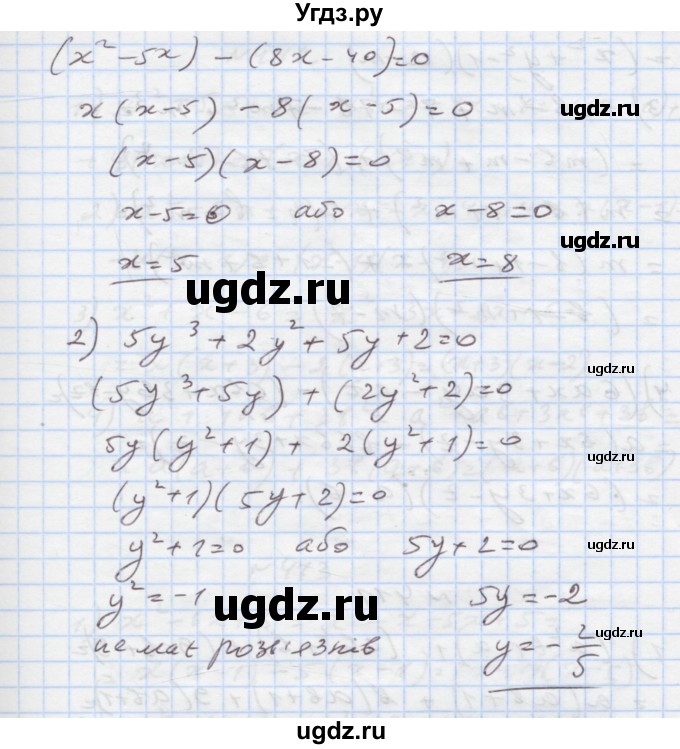 Угдз.ру
(x² - 5x) - (8x - 40) = 0
ugdz.ru
x(x - 5) - 8(x - 5) = 0
ugdz.ru
(x - 5)(x - 8) = 0
x - 5 = 0 або x - 8 = 0
ugdz.ru
x = 5 x = 8
ugdz.ru
2) 5y³ + 2y² + 5y + 2 = 0
ugdz.ru
(5y³ + 5y) + (2y² + 2) = 0
5y(y² + 1) + 2(y² + 1) = 0
ugdz.ru
(y² + 1)(5y + 2) = 0
y² + 1 = 0 або 5y + 2 = 0
ugdz.ru
y² = -1 5y = -2
ugdz.ru
немає розв'язків y = -2/5
ugdz.ru
ugdz.ru